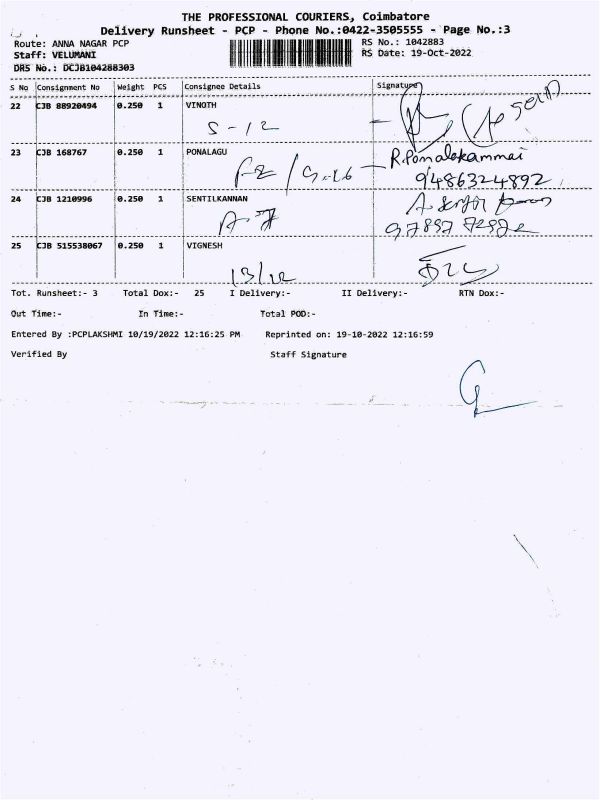 THE PROFESSIONAL COURIERS, Coimbatore
Delivery Runsheet - PCP - Phone No.:0422-3505555 - Page No.:3
Route: ANNA NAGAR PCP
RS No.: 1042883
Staff: VELUMANI
RS Date: 19-Oct-2022
DRS No.: DCJB104288303
S No Consignment No Weight PCS Consignee Details Signature
22 CJB 88920494 0.250 1 VINOTH
S-12
23 CJB 168767 0.250 1 PONALAGU R.Ponalakammai
9486324892
24 CJB 1210996 0.250 1 SENTILKANNAN
25 CJB 515538067 0.250 1 VIGNESH
Tot. Runsheet:- 3 Total Dox:- 25 I Delivery:- II Delivery:- RTN Dox:-
Out Time:- In Time:- Total POD:-
Entered By :PCPLAKSHMI 10/19/2022 12:16:25 PM Reprinted on: 19-10-2022 12:16:59
Verified By Staff Signature